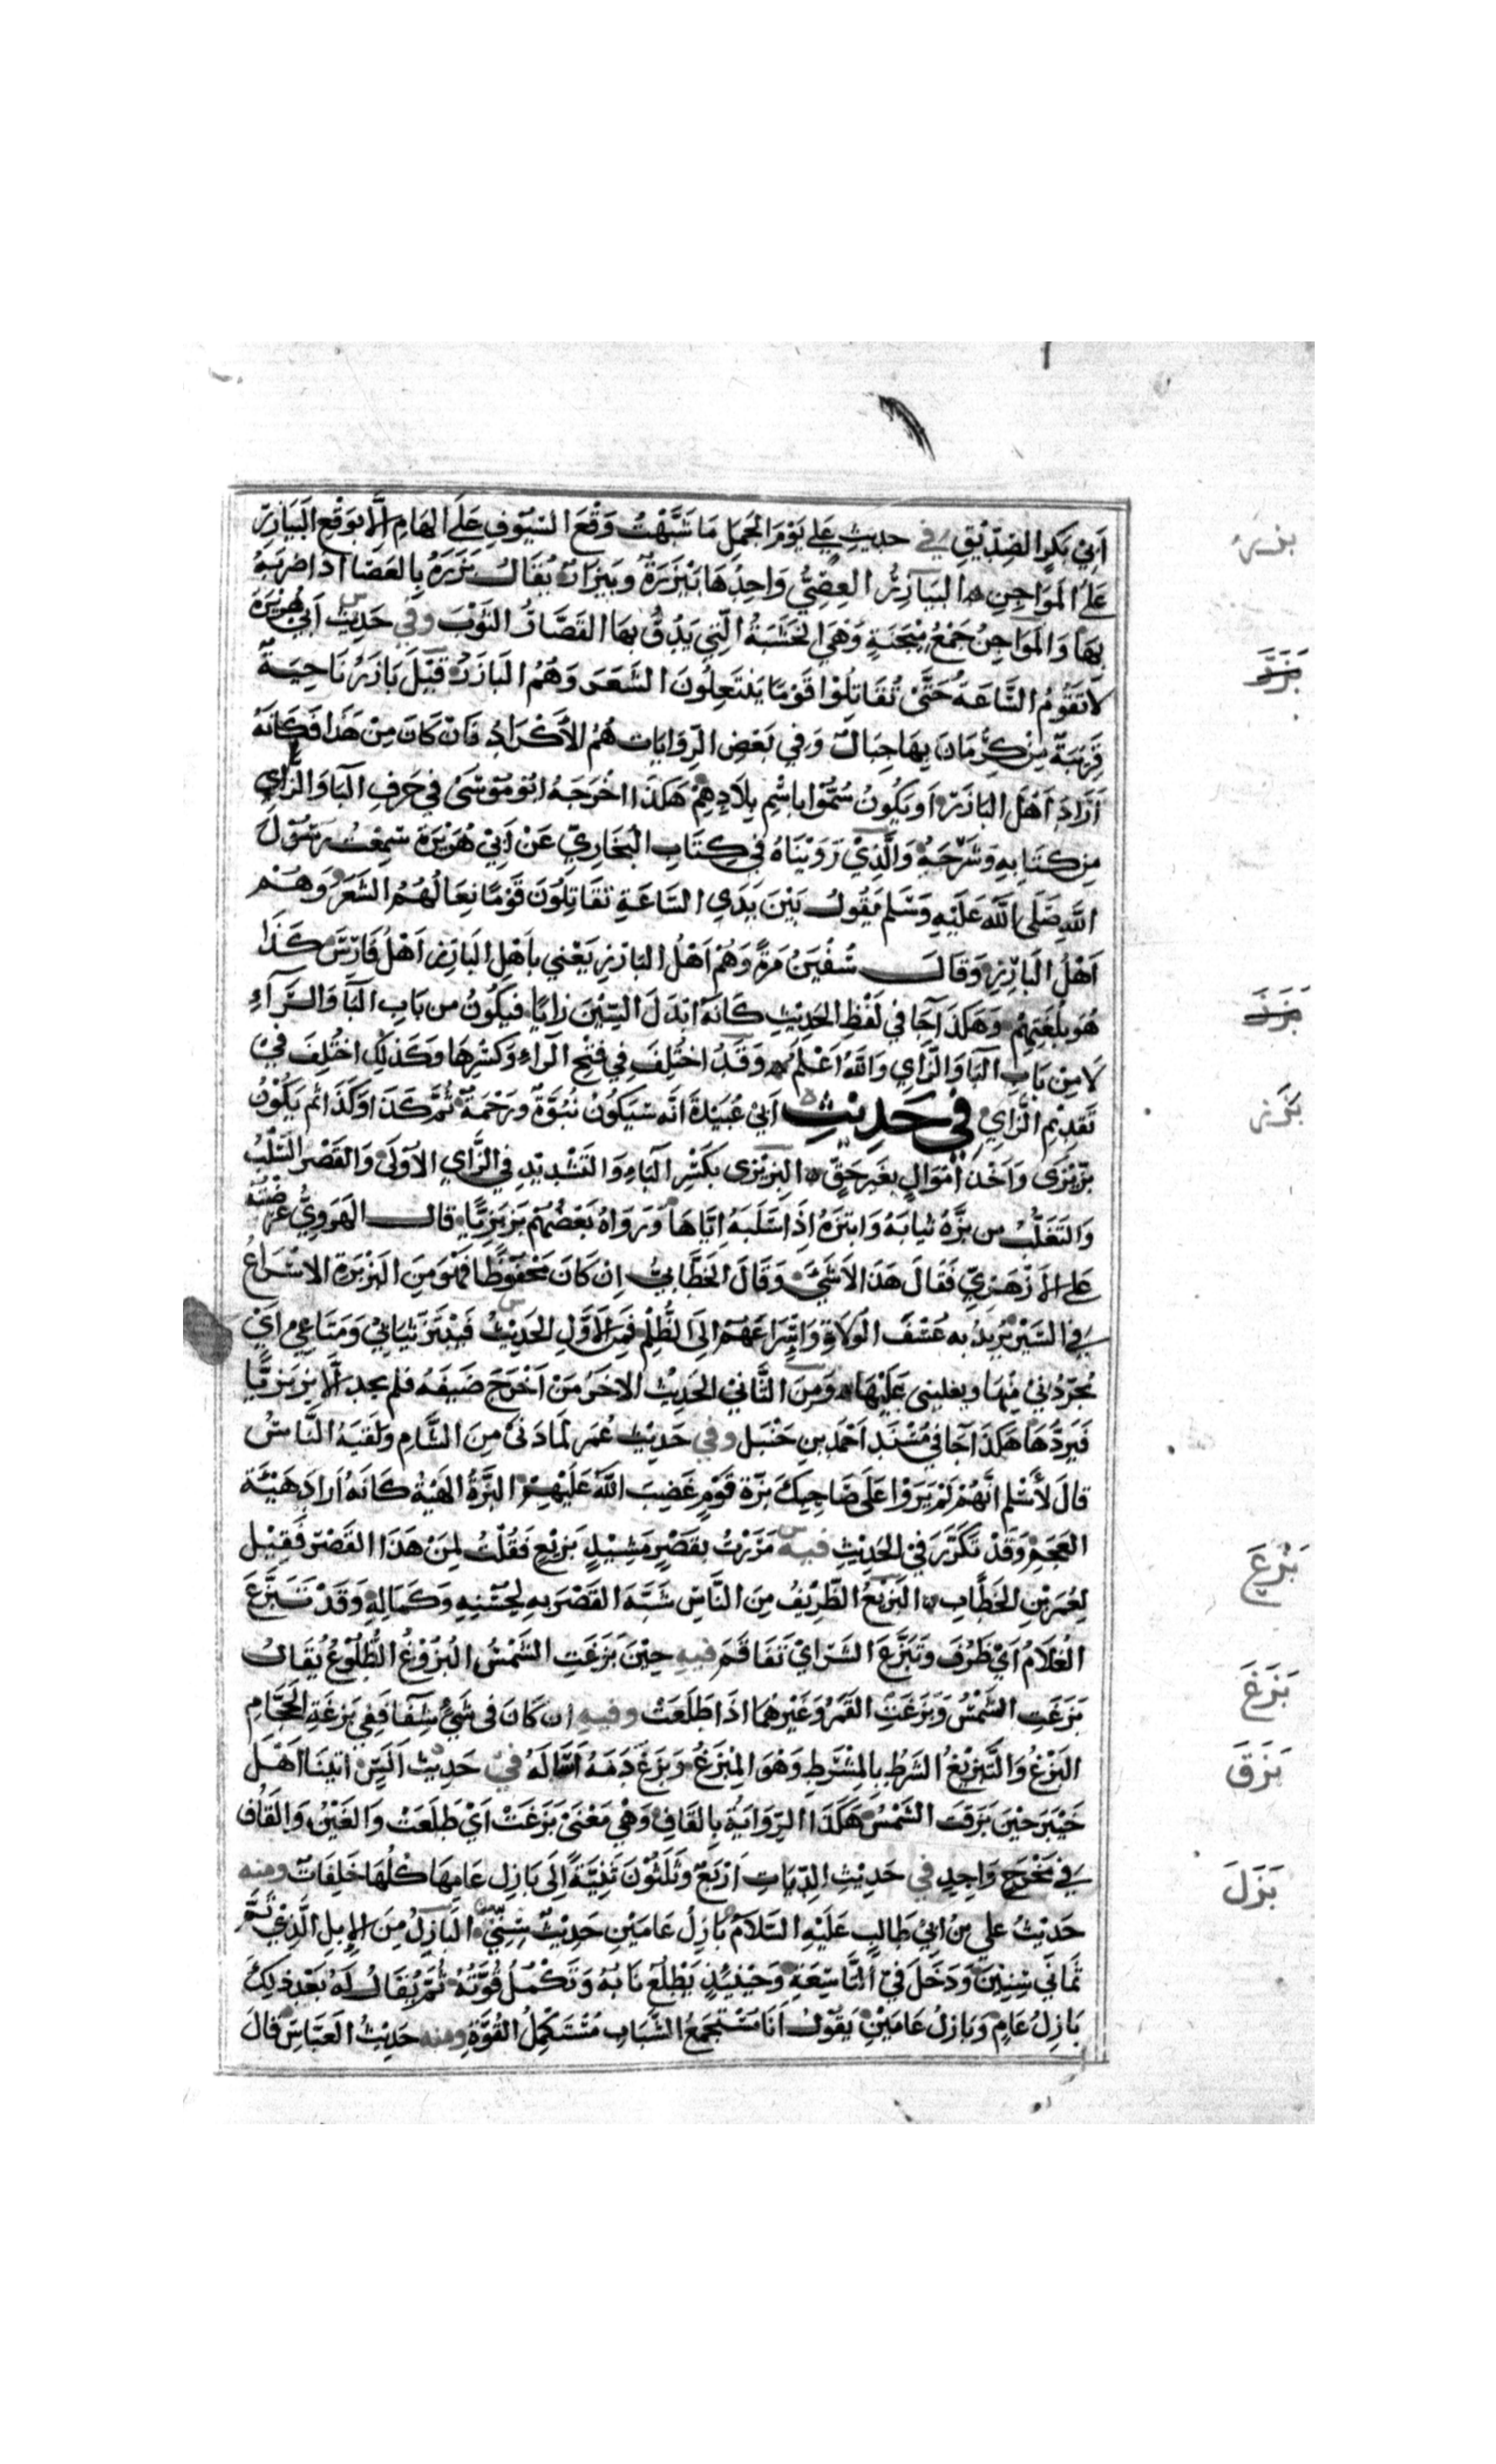 اَبِيْ بَكرٍ الصِّدِّيْقِ في حديثِ عَلي يَوْمَ الجَمَل مَا شَبَّهْتُ وَقْعَ السُّيُوفِ عَلَى الهَامِ اِلَّا بوَقْعِ البَيَازِرِ
عَلَى المَوَاجِنِ البَيَازِرُ العِصِيُّ وَاحِدُهَا بَيْزَرَةٌ وبَيْزَارٌ يُقَالُ بَزَرَهُ بِالعَصَا اذا ضَرَبَهُ
بِهَا وَالمَوَاجِنُ جَمْعُ مِيْجَنَةٍ وَهَيَ الخَشَبَةُ الَّتِي يَدُقُّ بهَا القَصَّارُ الثَوْبَ وفي حَدِيثِ اَبِي هُرَيْرَةَ
لَا تَقُوْمُ السَّاعَةُ حَتَّى تُقَاتِلُوْا قَوْمًا يَنْتَعِلُونَ الشَعَرَ وَهُمُ البَازَرُ قِيْلَ بَازَرُ نَاحِيَةٌ
قَرِيْبَةٌ مِنْ كِرْمَانَ بِهَا جِبَالٌ وَفي بَعْضِ الرِّوَايَات هُمُ الأَكْرَادُ فَاِنْ كَانَ مِنْ هَذَا فَكَأَنَّهُ
اَرَادَ اَهْلَ البَازَرِ اَو يَكُونُ سُمُّوْا بِاسْمِ بِلَادِهِمْ هَكَذَا اخْرَجَهُ ابُو مُوْسَى في حَرفِ البَا وَالزَّايِ
مِن كتَابِهِ وَشَرَحَهُ وَالَّذِيْ رَوَيْنَاهُ فِي كِتَابِ البُخَارِيّ عَنْ اَبِيْ هُرَيْرَةَ سَمِعْتُ رَسُوْلَ
اللهِ صَلَّى اللهُ عَلَيْهِ وَسَلم يَقُولُ بَيْنَ يَدَيِ السَّاعَةِ تُقَاتِلُوْنَ قَوْمًا نِعَالُهُمُ الشَعَرُ وَهُمْ
اَهْلُ البَارِزِ وَقَالَ سُفْيَنُ مَرةً وَهُمْ اَهْلُ البَارِزِ يَعْنِي باَهْلِ البَارِزِ اَهْلُ فَارِسَ كَذَا
هُوَ بلُغَتِهِمْ وَهَكَذَا جَا في لَفْظِ الحَدِيْثِ كَانَّه اَبْدَلَ السِّيْنَ زايًا فيَكُونُ من بَابِ البَا وَالرَّآءِ
لَا مِنْ بَابِ البَا وَالزَّاي وَاللهُ اَعْلَمُ وَقَدُ اخْتُلِفَ فِي فَتْحِ الرَّاءِ وَكَسْرِهَا وَكَذلِكَ اخْتُلِفَ فِيْ
تَقدِيْمِ الزَّاي فِي حَدِيْثِ اَبِيْ عُبَيْدَةَ اَنَّه سَيَكُونُ نُبُوَّةٌ ورَحْمَةٌ ثُمَّ كَذَا وَكَذَا ثم يَكُوْنُ
بِزِّيْزَى وَاَخْذَ اَمْوَالٍ بِغَيرِ حَقٍّ البِزِّيْزَى بكَسْرِ البَاءِ وَالتَشْدِيْدِ فِي الزَّاي الاُوْلَى وَالقَصْرِ السَّلْبُ
وَالتَغَلُّبُ من بَزَّهُ ثيابَهُ وَابْتزَّهُ اِذَا سَلَبَهُ اِيَّاهَا وَرَوَاهُ بَعْضُهُمْ بَزْبَزِيًّا قال الهَرَوِيُّ عَرَضْتُهُ
عَلى الاَزْهَرِيِّ فَقَالَ هَذَا لَاشَيْءَ وَقَالَ الخَطَّابِيُّ اِن كَانَ مَحْفُوْظًا فَهُوَ مِنَ البَزْبَزَةِ الاسْرَاعُ
في السَيْرِ يُرِيْدُ بِه عَسْفَ الوُلَاةِ وَاِسْرَاعَهُمْ اِلَى الظُلْمِ فَمِنَ الأَوَّلِ الحَدِيْثُ فَيَبْتَزُّ ثِيَابِيْ وَمَتَاعِي اَيْ
يُجَرِّدُنِيْ مِنْهَا ويغلبنى عَلَيْهَا وَمِنَ الثَّانِيْ الحَدِيْثُ الاخَرُ مَنْ اَخْرَجَ ضَيفَهُ فلم يجد اِلَّا بَزْبَزِيًّا
فَيَرِدُّهَا هَكَذَا جَا فِي مُسْنَدِ اَحْمَدَ بنِ حَنْبَل وفي حَدِيْثِ عُمَر لَمَّا دَنَى مِنَ الشَّامِ وَلَقيَهُ النَّاسُ
قالَ لأَسْلم اِنَّهُمْ لَمْ يَرَوْا عَلَى صَاحِبِكَ بِزَّةَ قَوْمٍ غَضِبَ اللهُ عَلَيْهِمْ البِزَّةُ الهَيْئَةُ كَانَّهُ اَرَادَ هَيْئَةَ
العَجَمِ وَقَدْ تَكَرَّرَ فِي الحَدِيْثِ فيه مَرَرْتُ بِقَصْرٍ مَشِيْدٍ بَزِيْعٍ فَقُلْتُ لِمَنْ هَذَا القَصْرُ فَقِيْل
لِعُمَرَ بْنِ الخَطَّابِ البَزِيْعُ الظَرِيْفُ مِنَ النَّاسِ شَبَّهَ القَصْرَ بِهِ لحُسْنِهِ وَكَمَالِهِ وَقَدْ تَبَزَّعَ
الغُلَامُ اَيْ ظَرُفَ وتَبَزَّعَ الشَرُّ ايْ تَفَاقَمَ فيهِ حِيْنَ بَزَغَتِ الشَّمْسُ البُزُوْغُ الطُّلُوْعُ يُقَالُ
بَزَغَتِ الشَّمْسُ وَبَزَغَ القَمَرُ وَغَيْرِهُمَا اذَا طَلَعَتْ وفيهِ ان كَانَ فى شَيْءٍ شِفَا فَفِي بَزغَةِ الحَجَّامِ
البَزْغُ وَالتَّبْزِيْغُ الشَرْطُ بِالمِشْرَطِ وَهُوَ المِبْزَغُ وَبَزَغَ دَمَهُ اَسَالَهُ فِي حَدِيْثِ اَنَسٍ اتَيْنَا اَهْلَ
خَيْبَرَ حِيْنَ بَزَقَتِ الشَّمْسُ هَكَذَا الرِّوَايَةُ بِالقَافِ وَهْيَ مَعْنَى بَزَغَتْ اَيْ طَلَعَتْ وَالغَيْنُ وَالقَافُ
في مَخْرَجٍ وَاحِدٍ في حَدِيْثِ الدِّيَاتِ اَرْبَعٌ وَثَلَثُوْنَ ثَنِيَّةً اِلَى بَازِلِ عَامِهَا كُلُّهَا خَلِفَاتٌ ومنه
حَدِيْثُ علي بن اَبِيْ طَالِبٍ عَلَيْهِ السَّلَامُ بَازِلُ عَامَيْنِ حَدِيْثٌ سِنِّيْ البَازِلُ مِنَ الاِبِلِ الَّذِيْ تَمَّ
ثَمَانِي سِنِيْنَ وَدَخَلَ فِيْ التَّاسِعَةِ وَحِيْنَئِذٍ يَطْلُعُ نَابُهُ وَتَكْمُلُ قُوَّتُهُ ثُمَّ يُقَالُ لَهُ بَعْدَ ذلِكَ
بَازِلُ عَامٍ وَبَازِلُ عَامَيْنِ يَقُوْلُ اَنَا مُسْتَجْمِعُ الشَّبَابِ مُسْتَكْمِلُ القُوَّةِ ومنه حَدِيْثُ العَبَّاسِ قالَ
بَزَعَ
بَزَغَ
بَزَقَ
بَزَلَ